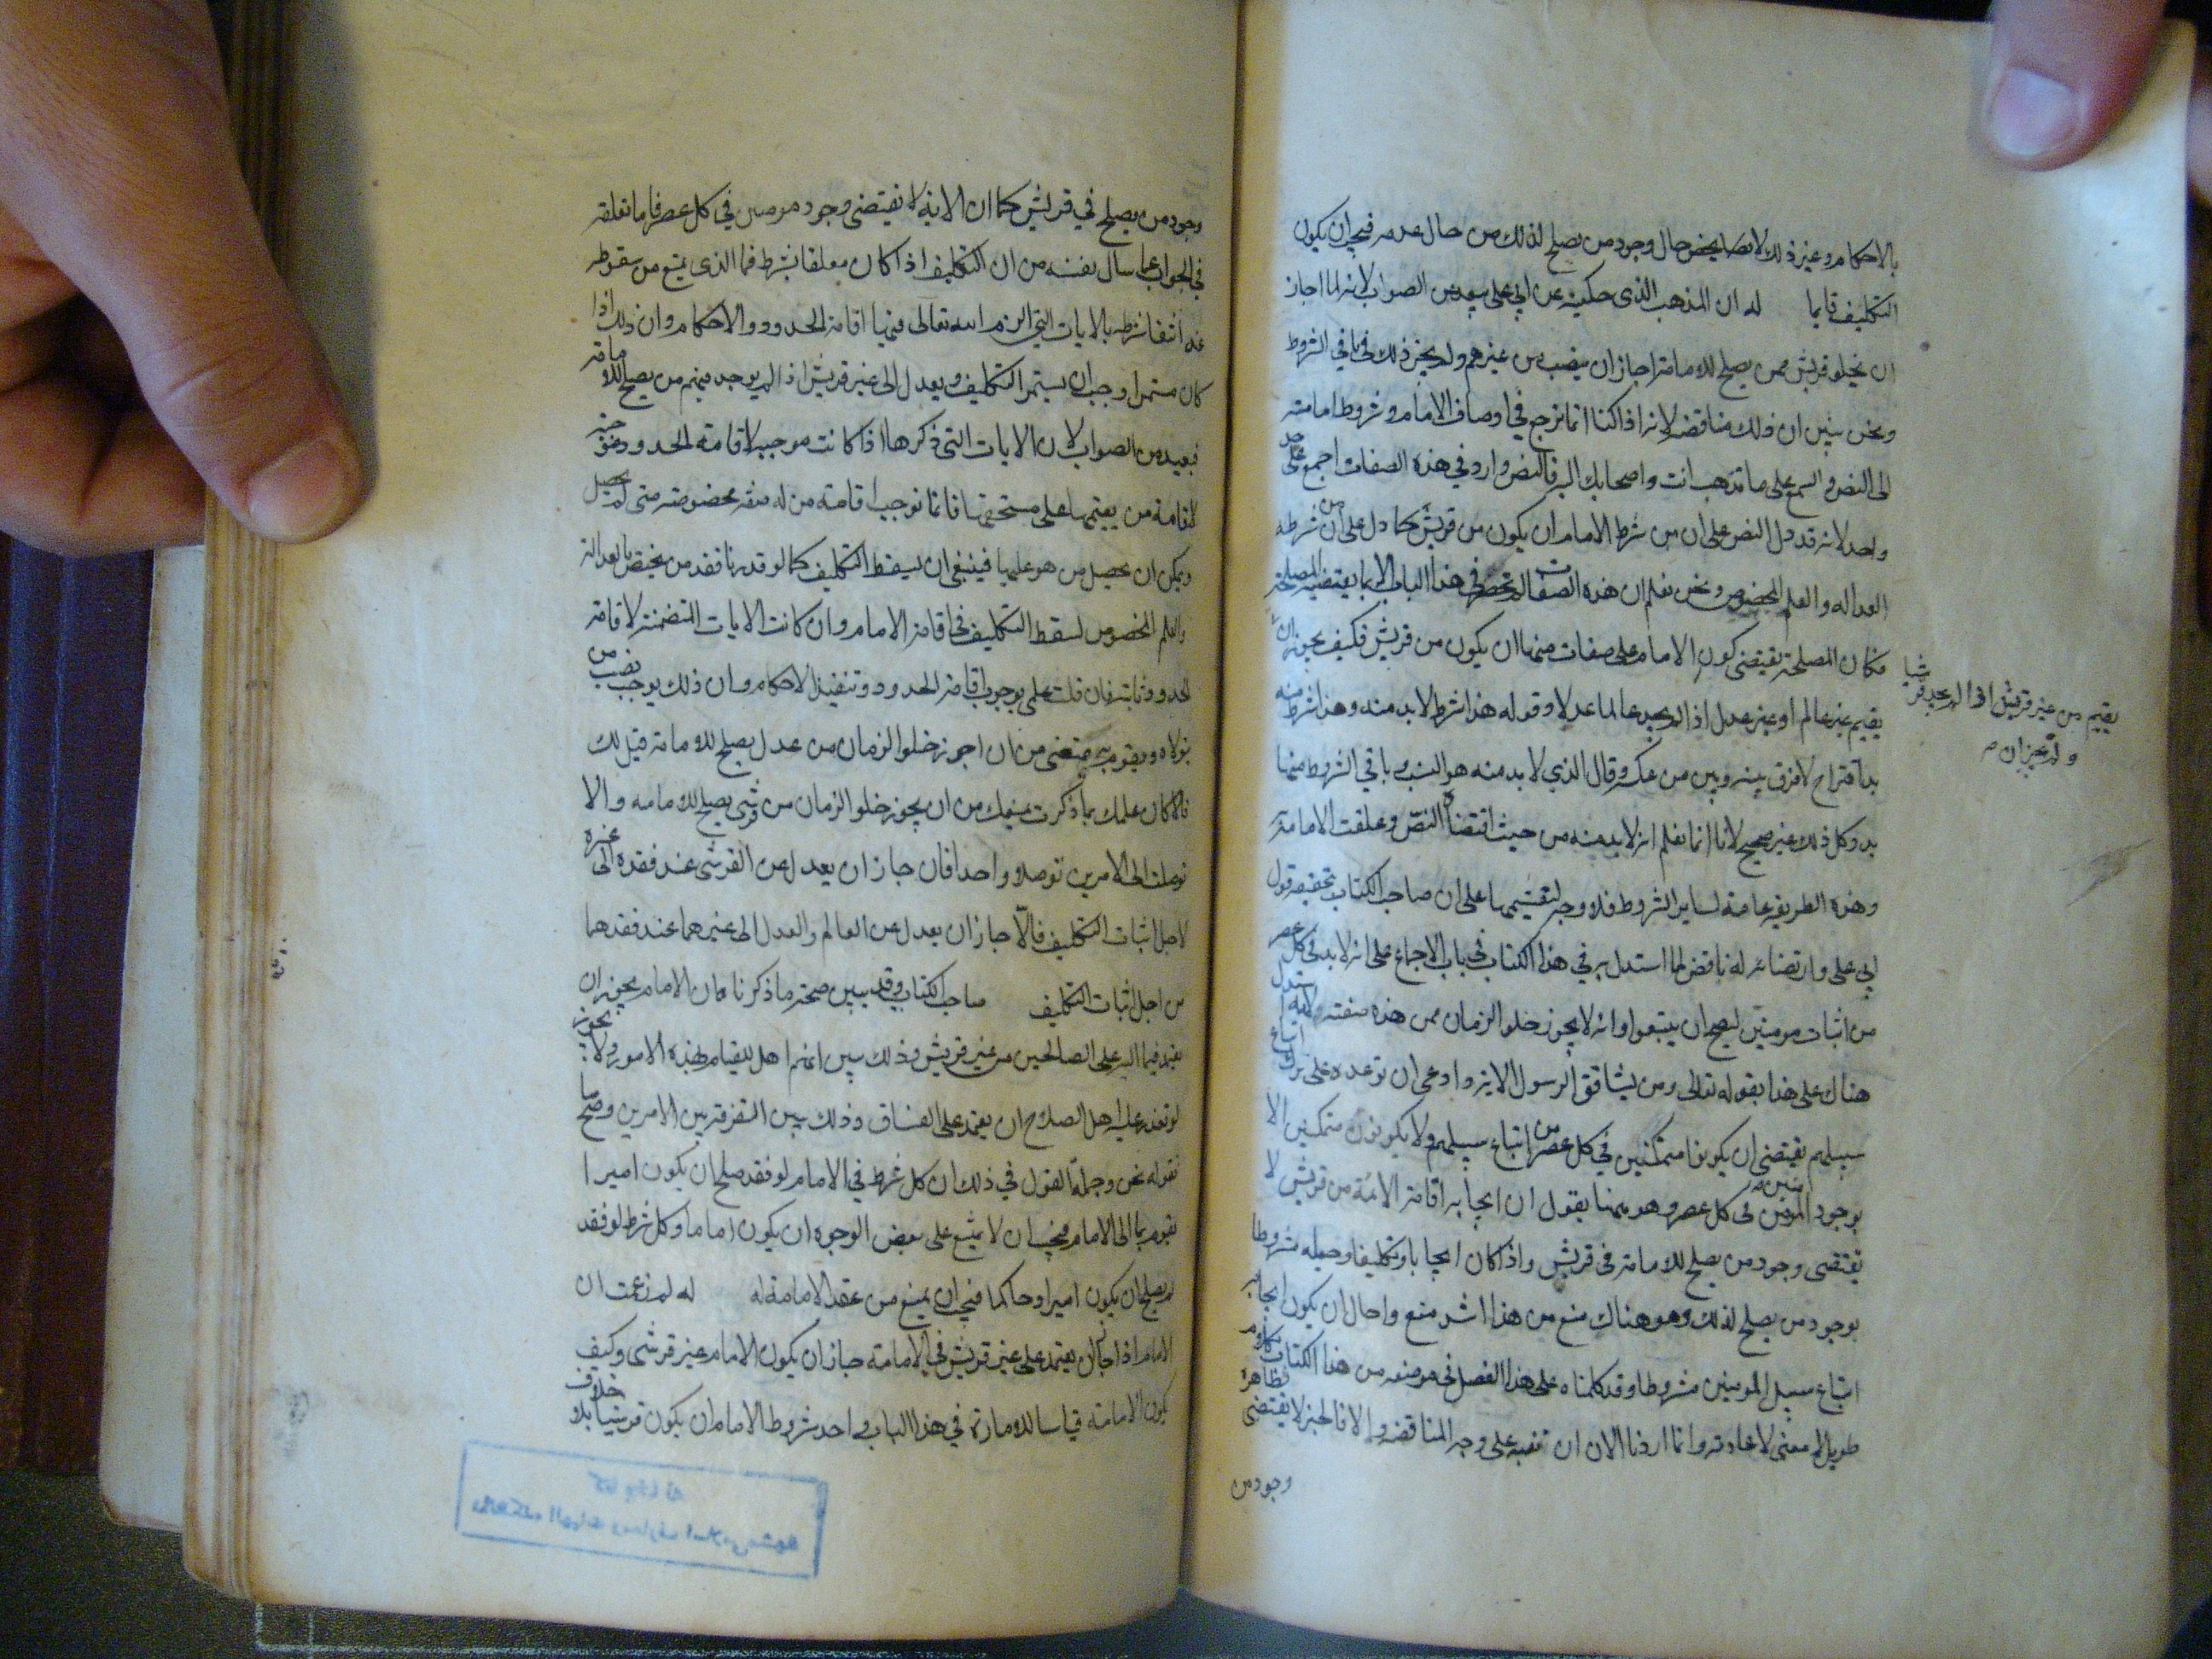 بالاحكام وغير ذلك لا يخص حال وجود من يصلح لذلك من حال عدمه فيجب ان يكون
التكليف قايما له ان المذهب الذى حكيته عن ابى على بعيد من الصواب لانه لما اجاز
ان يخلو قريش ممن يصلح للامامة اجاز ان ينصب من غيرهم ولم يجز ذلك فى باقي الشروط
ونحن نبين ان ذلك مناقضة لانه اذا كنا انما نرجع في اوصاف الامام وشروط امامته
الى النص والسمع على ما تذهب انت واصحابك اليه فالنص وارد في هذه الصفات اجمع على حد
واحد لانه قد دل النص على ان من شرط الامام ان يكون من قريش كما دل على ان من شرطه
العداله والعلم المخصوص ونحن نعلم ان هذه الصفات لم تحصر في هذا الباب الا بما يقتضيه المصلحة
فكان المصلحة يقتضى كون الامام على صفات منها ان يكون من قريش فكيف يجوز ان
يقيم من غير قريش اذا لم يجد قرشيا
ولم يجز ان
يقيم غير عالم او غير عدل اذا لم يجد عالما عدلا وقوله هذا شرط لا بد منه وهذا شرط منه
بد اقتراح لا فرق بينه وبين من عكس وقال الذي لا بد منه هو النسب وباقي الشروط منها
بد وكل ذلك غير صحيح لانا انما نعلم انه لا بد منه من حيث اقتضاه النص وعلقت الامامة به
وهذه الطريقه عامة لساير الشروط فلا وجه لتقسيمها على ان صاحب الكتاب بتحقيقه قول
ابى على وارتضائه له ناقض لما استدل به في هذا الكتاب في باب الاجماع على انه لا بد فى كل عصر
من اثبات مومنين ليصح ان يتبعوا وانه لا يجوز خلو الزمان ممن هذه صفته لانه استدل
هناك على هذا بقوله تعالى ومن يشاقق الرسول الاية وادعى ان توعده على ترك اتباع
سبيلهم يقتضى ان يكونوا متمكنين في كل عصر من اتباع سبيلهم ولا يكونون متمكنين الا
بوجود المومنين فى كل عصر وهو ههنا يقول ان ايجابه اقامة الائمة من قريش لا
يقتضى وجود من يصلح للامامة فى قريش واذا كان ايجابا وتكليفا وجعله مشروطا
بوجود من يصلح لذلك وهو هناك منع من هذا اشد منع واحال ان يكون ايجابه
اتباع سبيل المومنين مشروطا وقد كلمناه على هذا الفصل فى موضعه من هذا الكتاب بكلام
طويل لا معنى لاعادته وانما اردنا الان ان ننبه على وجه المناقضة والا فالخبر لا يقتضى ظاهرا
وجود من
وجود من يصلح في قريش كما ان الاية لا تقتضى وجود مومنين في كل عصر فاما تعلقه
في الجواب عما سال نفسه من ان التكليف اذا كان معلقا بشرط فما الذى يمنع من سقوطه
عند انتفا شرطه بالايات التي الزم الله تعالى فيها اقامة الحدود والاحكام وان ذلك اذا
كان مستمرا وجب ان يستمر التكليف ويعدل الى غير قريش اذا لم يوجد فيهم من يصلح للامامة
فبعيد من الصواب لان الايات التى ذكرها اذا كانت موجبه لاقامة الحدود وموجبة
لاقامة من يقيمها على مستحقيها فانما توجب اقامة من له صفة مخصوصه متى لم يحصل
ويمكن ان يحصل من هو عليها فينبغى ان يسقط التكليف كما لو قدرنا فقد من يختص بالعدالة
والعلم المخصوص لسقط التكليف فى اقامة الامام وان كانت الايات المتضمنة لاقامة
الحدود ثابتة فان قلت علمى بوجوب اقامة الحدود وتنفيذ الاحكام وان ذلك يوجب نصب من
يتولاه ويقوم به يمنعنى من ان اجوز خلو الزمان من عدل يصلح للامامة قيل لك
فالا كان علمك بما ذكرت يمنعك من ان يجوز خلو الزمان من قرشى يصلح للامامه والا
توصلت الى الامرين توصلا واحدا فان جاز ان يعدل عن القرشى عند فقده الى غيره
لاجل اثبات التكليف فالّا جاز ان يعدل عن العالم والعدل الى غيرهما عند فقدهما
من اجل اثبات التكليف صاحب الكتاب وقد يبين صحة ما ذكرناه ان الامام يجوز ان
يعتمد فيما اليه على الصالحين من غير قريش وذلك يبين انهم اهل للقيام بهذه الامور ولا يجوز
لو تعذر عليه اهل الصلاح ان يعتمد على الفساق وذلك يبين التفرقة بين الامرين وصحة ما
نقوله نحن وجملة القول في ذلك ان كل شرط في الامام لو فقد صلح ان يكون اميرا
يقوم بما الى الامام فيجب ان لا يمتنع على بعض الوجوه ان يكون اماما وكل شرط لو فقد
لم يصلح ان يكون اميرا وحاكما فيجب ان يمنع من عقد الامامة له له لم زعمت ان
الامام اذا جاز ان يعتمد على غير قريش في الامامة جاز ان يكون الامام غير قرشى وكيف
يكون الامامة قياسا للامارة في هذا الباب واحد شروط الامام ان يكون قرشيا بلا خلاف